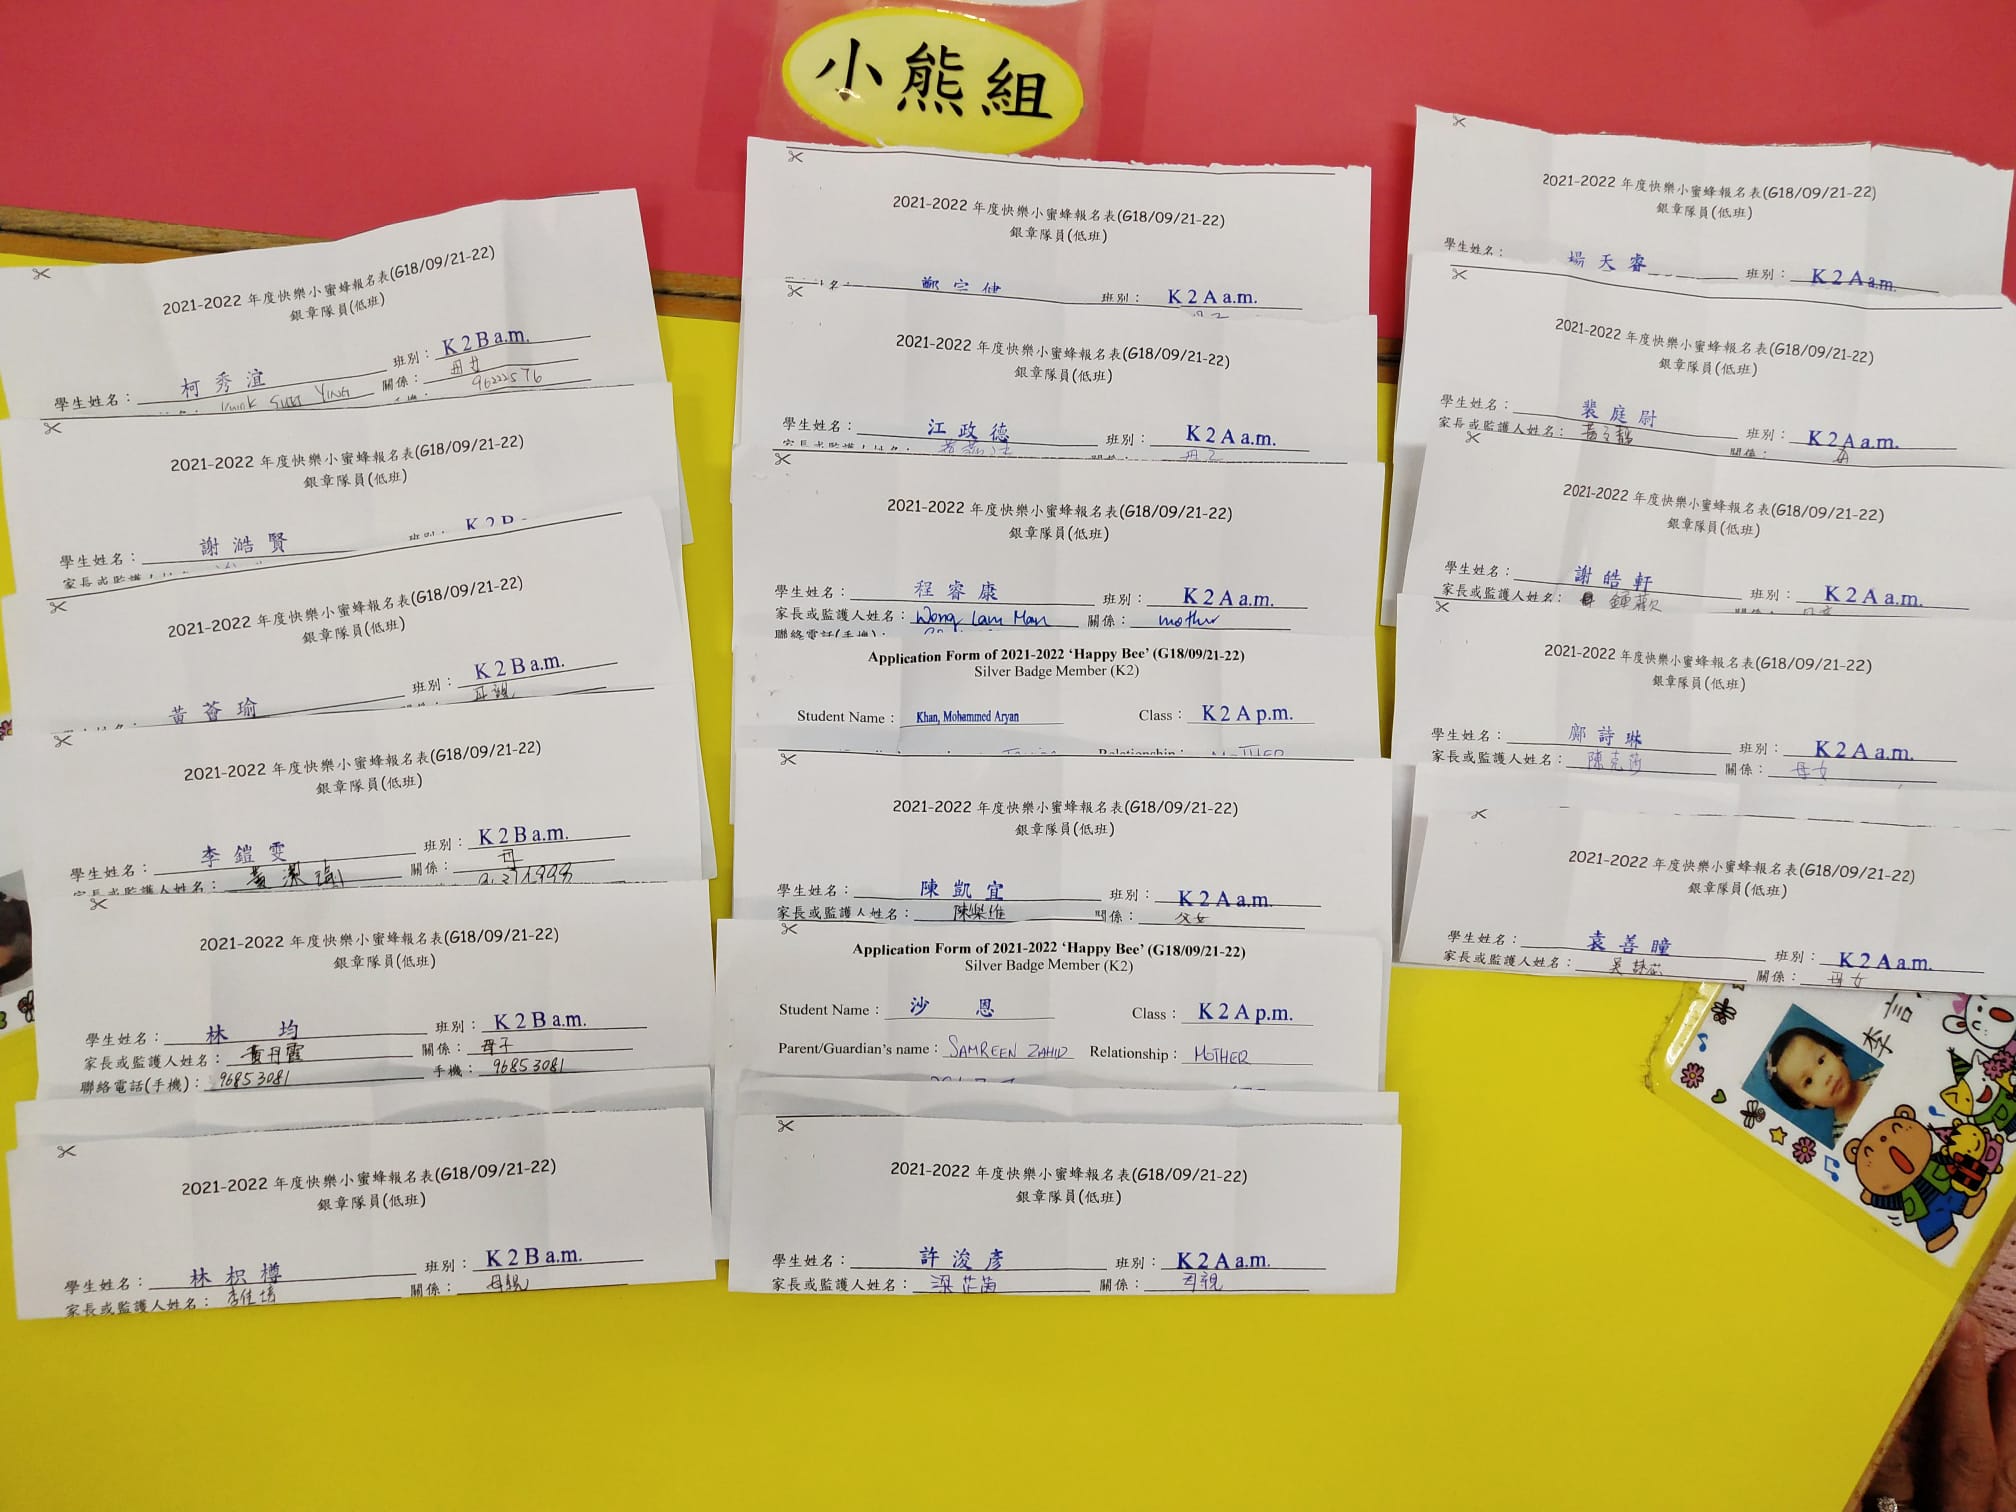 小熊組
2021-2022 年度快樂小蜜蜂報名表(G18/09/21-22)
銀章隊員(低班)
學生姓名： 柯秀渲 班別： K2B a.m.
關係： 母女
YING 96222576
2021-2022 年度快樂小蜜蜂報名表(G18/09/21-22)
銀章隊員(低班)
學生姓名： 謝澔賢
家長或監護人姓名
2021-2022 年度快樂小蜜蜂報名表(G18/09/21-22)
銀章隊員(低班)
黃薈瑜 班別： K2B a.m.
母親
2021-2022 年度快樂小蜜蜂報名表(G18/09/21-22)
銀章隊員(低班)
學生姓名： 李鎧雯 班別： K2B a.m.
家長或監護人姓名： 關係： 母
2021-2022 年度快樂小蜜蜂報名表(G18/09/21-22)
銀章隊員(低班)
學生姓名： 林均 班別： K2B a.m.
家長或監護人姓名： 黃丹霞 關係： 母子
聯絡電話(手機)： 96853081 手機： 96853081
2021-2022 年度快樂小蜜蜂報名表(G18/09/21-22)
銀章隊員(低班)
學生姓名： 林枳樽 班別： K2B a.m.
家長或監護人姓名： 關係： 母親
2021-2022 年度快樂小蜜蜂報名表(G18/09/21-22)
銀章隊員(低班)
班別： K2A a.m.
2021-2022 年度快樂小蜜蜂報名表(G18/09/21-22)
銀章隊員(低班)
學生姓名： 江政德 班別： K2A a.m.
家長或監護人姓名：
2021-2022 年度快樂小蜜蜂報名表(G18/09/21-22)
銀章隊員(低班)
學生姓名： 程睿康 班別： K2A a.m.
家長或監護人姓名： Wong Lam Man 關係： mother
聯絡電話(手機)：
Application Form of 2021-2022 ‘Happy Bee’ (G18/09/21-22)
Silver Badge Member (K2)
Student Name： Khan, Mohammed Aryan Class： K2A p.m.
Relationship： MOTHER
2021-2022 年度快樂小蜜蜂報名表(G18/09/21-22)
銀章隊員(低班)
學生姓名： 陳凱宜 班別： K2A a.m.
家長或監護人姓名： 陳樂維 關係： 父女
Application Form of 2021-2022 ‘Happy Bee’ (G18/09/21-22)
Silver Badge Member (K2)
Student Name： 沙恩 Class： K2A p.m.
Parent/Guardian's name： SAMREEN ZAHID Relationship： MOTHER
2021-2022 年度快樂小蜜蜂報名表(G18/09/21-22)
銀章隊員(低班)
學生姓名： 許浚彥 班別： K2A a.m.
家長或監護人姓名： 梁芷茵 關係： 母親
2021-2022 年度快樂小蜜蜂報名表(G18/09/21-22)
銀章隊員(低班)
學生姓名： 楊天睿 班別： K2A a.m.
2021-2022 年度快樂小蜜蜂報名表(G18/09/21-22)
銀章隊員(低班)
學生姓名： 裴庭尉 班別： K2A a.m.
家長或監護人姓名： 關係： 母
2021-2022 年度快樂小蜜蜂報名表(G18/09/21-22)
銀章隊員(低班)
學生姓名： 謝皓軒 班別： K2A a.m.
家長或監護人姓名：
2021-2022 年度快樂小蜜蜂報名表(G18/09/21-22)
銀章隊員(低班)
學生姓名： 鄺詩琳 班別： K2A a.m.
家長或監護人姓名： 陳克莎 關係： 母女
2021-2022 年度快樂小蜜蜂報名表(G18/09/21-22)
銀章隊員(低班)
學生姓名： 袁善瞳 班別： K2A a.m.
家長或監護人姓名： 關係： 母女
李